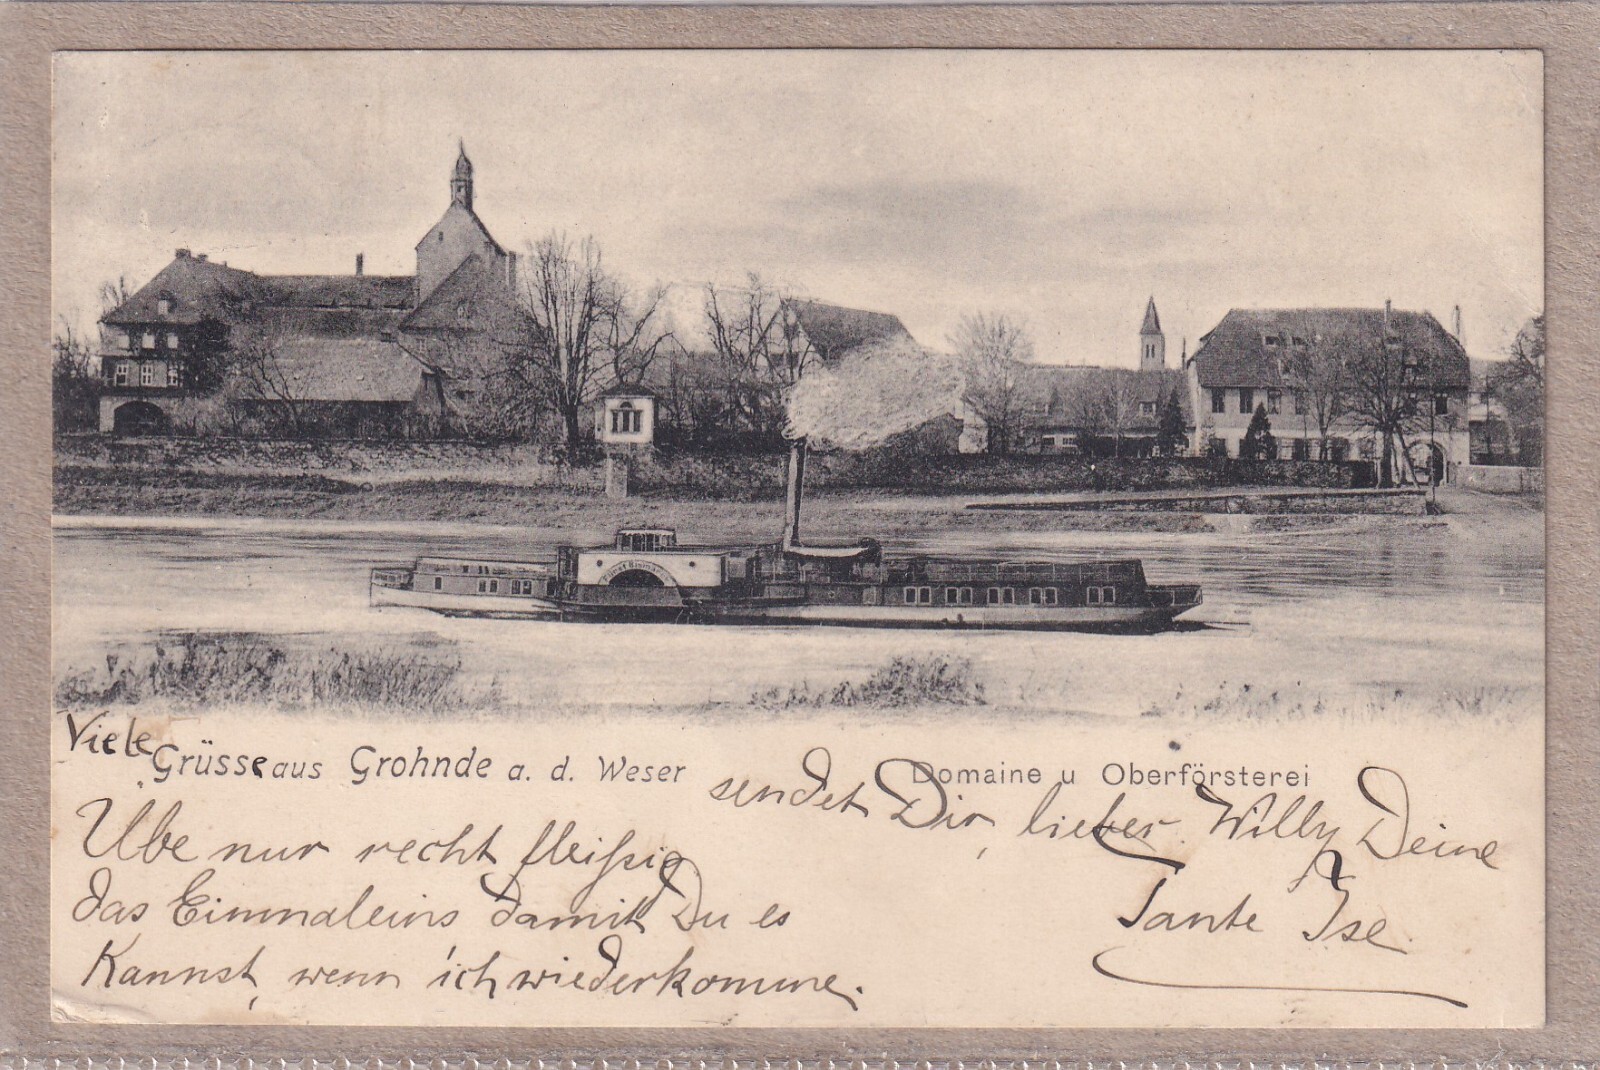 Fürst Bismarck
Viele Grüsse aus Grohnde a. d. Weser
Domaine u Oberförsterei
sendet Dir, lieber Willy Deine
Tante Ise.
Übe nur recht fleißig
das Einmaleins damit Du es
Kannst, wenn ich wiederkomme.